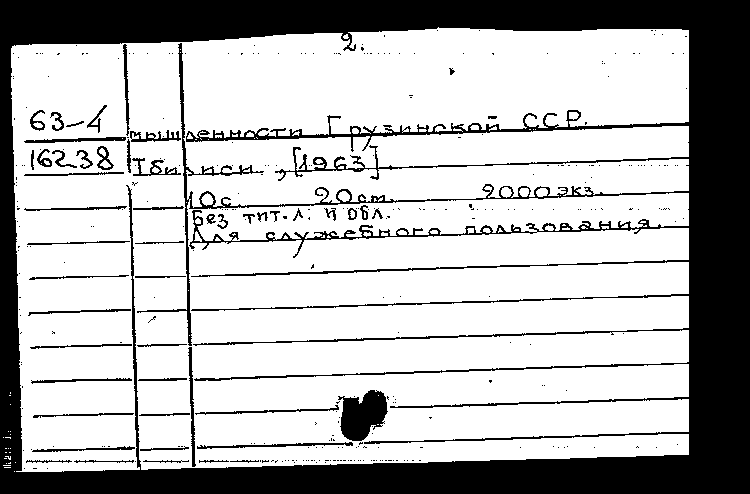 2.
63-4 мышленности Грузинской ССР.
16238 Тбилиси, [1963].
10с. 20см. 2000 экз.
Без тит. л. и обл.
Для служебного пользования.